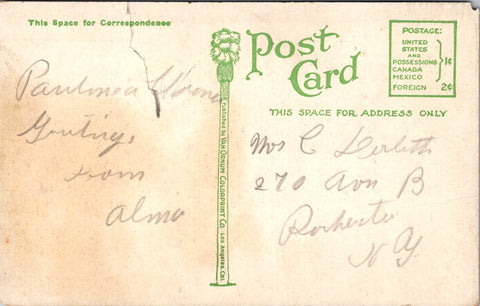 This Space for Correspondence
Greetings
from
Alma
Published by Van Ornum Colorprint Co. Los Angeles, Cal.
Post
Card
THIS SPACE FOR ADDRESS ONLY
POSTAGE:
UNITED
STATES
AND
POSSESSIONS 1¢
CANADA
MEXICO
FOREIGN 2¢
Mrs C
270 Ave B
Rochester
N Y